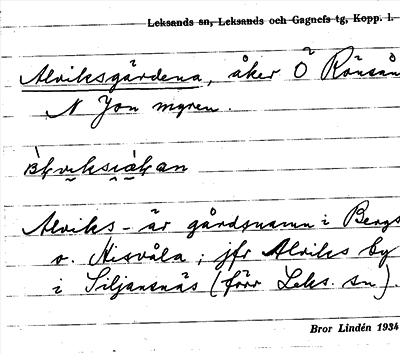 Leksands sn, Leksands och Gagnefs tg, Kopp. l.
Alviksgärdena, åker Ö Rönsån
N Jon mgren.
Alviks- är gårdsnamn i Bergs
o. Hisvåla; jfr Alviks by
i Siljansnäs (förr Leks. sn).
Bror Lindén 1934